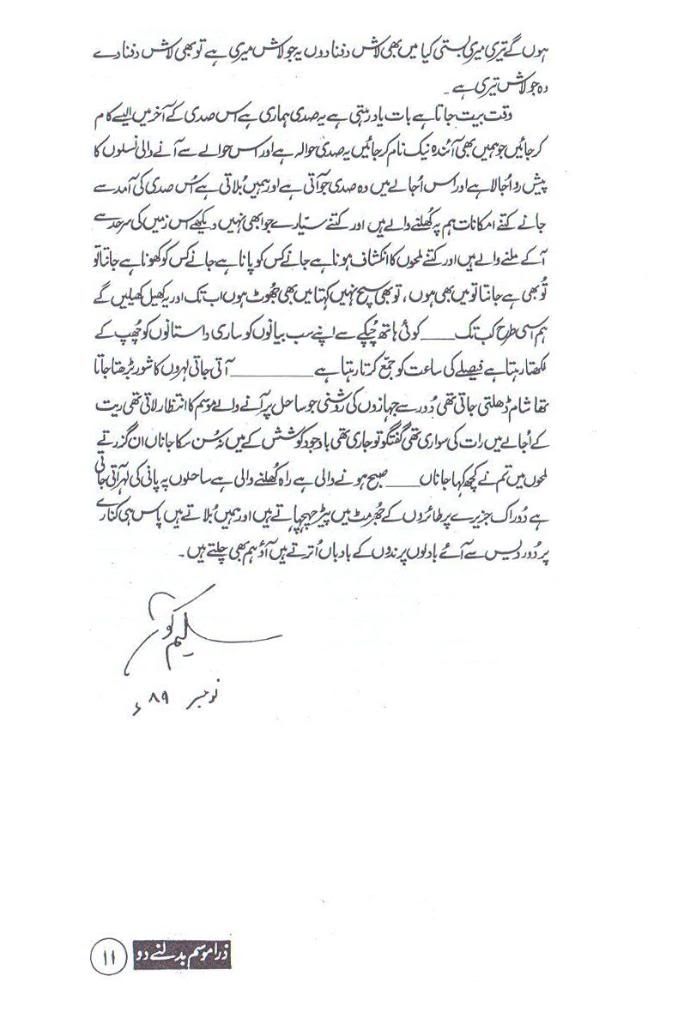 ہوں گے تیری میری بستی کیا میں بھی لاش دفنا دوں یہ جو لاش میری ہے تو بھی لاش دفنا دے
وہ جو لاش تیری ہے ۔
وقت بیت جاتا ہے بات یاد رہتی ہے یہ صدی ہماری ہے اس صدی کے آخر میں ایسے کام
کر جائیں جو ہمیں بھی آئندہ نیک نام کر جائیں یہ صدی حوالہ ہے اور اس حوالے سے آنے والی نسلوں کا
پیش رو اُجالا ہے اور اس اُجالے میں وہ صدی جو آتی ہے اور ہمیں بُلاتی ہے اُس صدی کی آمد سے
جانے کتنے امکانات ہم پہ کُھلنے والے ہیں اور کتنے سیّارے جو ابھی نہیں دیکھے اس زمیں کی سرحد سے
آکے ملنے والے ہیں اور کتنے لمحوں کا انکشاف ہونا ہے جانے کس کو پانا ہے جانے کس کو کھونا ہے جانتا تو
تُو بھی ہے جانتا تو میں بھی ہوں ، تو بھی سچ نہیں کہتا میں بھی جھوٹ ہوں اب تک اور یہ کھیل کھیلیں گے
ہم اسی طرح کب تک ____ کوئی ہاتھ چُپکے سے اپنے سب بیانوں کو ساری داستانوں کو چُھپ کے
لکھتا رہتا ہے فیصلے کی ساعت کو جمع کرتا رہتا ہے __________ آتی جاتی لہروں کا شور بڑھتا جاتا
تھا شام ڈھلتی جاتی تھی دُور سے جہازوں کی روشنی جو ساحل پر آنے والے موسم کا انتظار لاتی تھی ریت
کے اُجالے میں رات کی سواری تھی گفتگو تو جاری تھی باوجود کوشش کے میں نہ سُن سکا جاناں ان گزرتے
لمحوں میں تم نے کچھ کہا جاناں ____ صبح ہونے والی ہے راہ کُھلنے والی ہے ساحلوں پہ پانی کی لہر آتی جاتی
ہے دُور اک جزیرے پر طائروں کے جھرمٹ میں پیڑ چہچہاتے ہیں اور ہمیں بُلاتے ہیں پاس ہی کنارے
پر دُور دیس سے آئے بادلوں پرندوں کے بادباں اُترتے ہیں آؤ ہم بھی چلتے ہیں ۔
سلیم کوثر
نومبر ۸۹ء
ذرا موسم بدلنے دو ۱۱